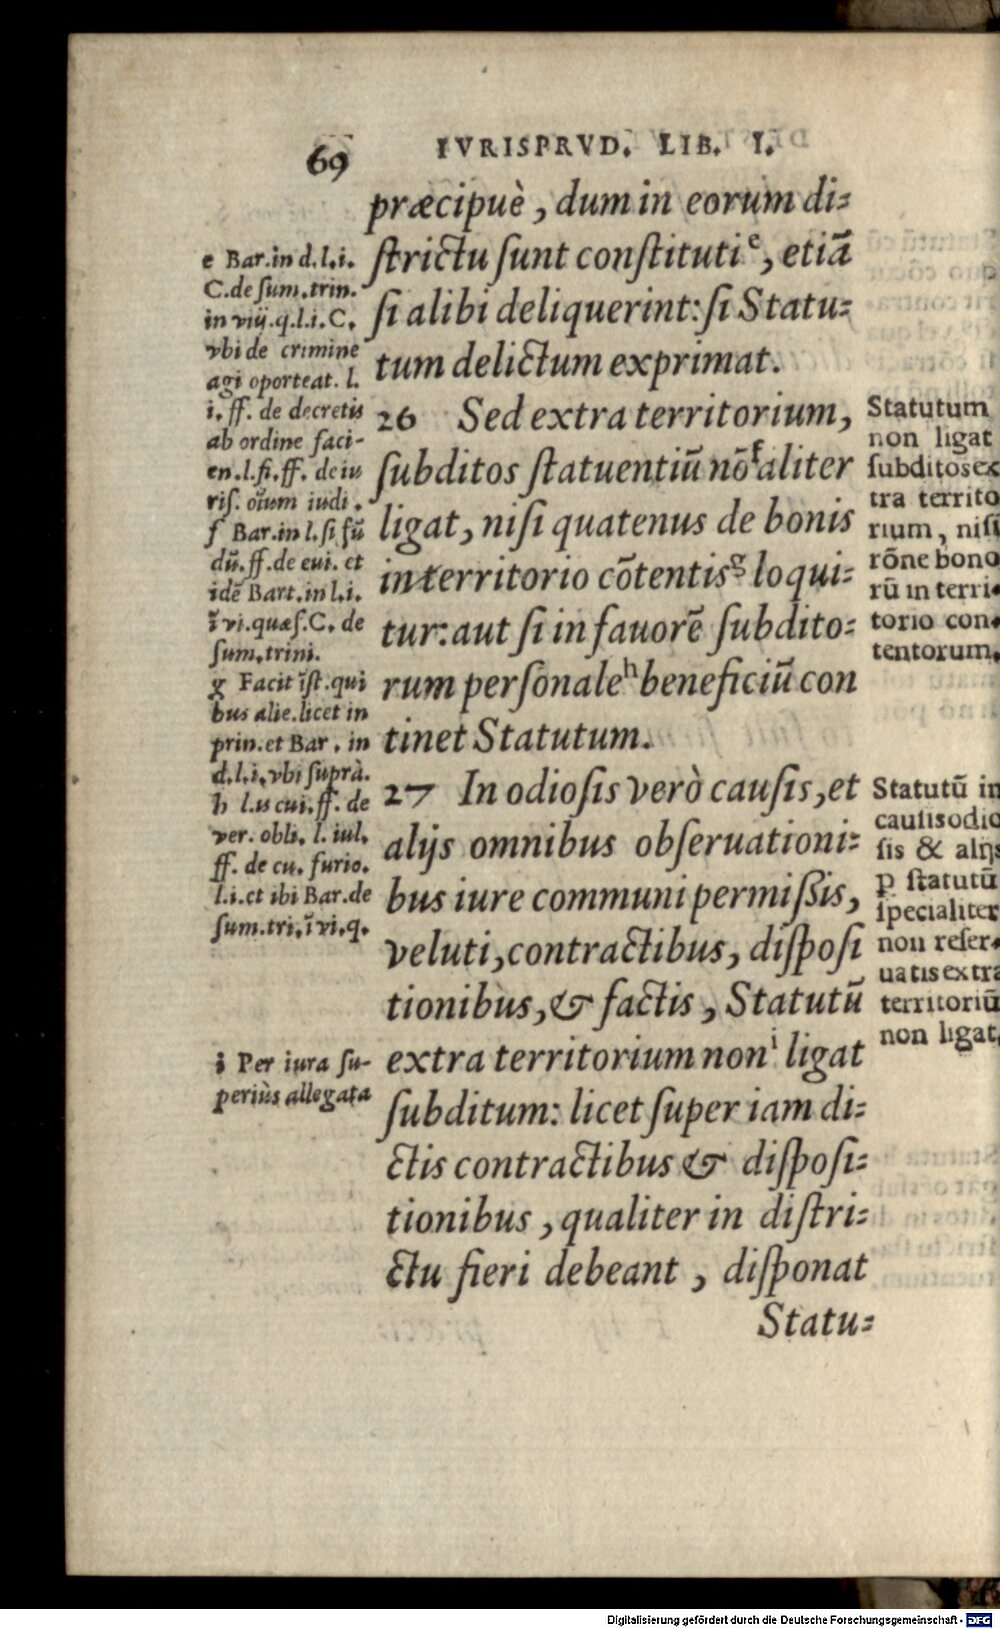 69
IVRISPRVD. LIB. I.
præcipuè, dum in eorum di=
ſtrictu ſunt conſtituti e, etiã
ſi alibi deliquerint: ſi Statu=
tum delictum exprimat.
26 Sed extra territorium,
ſubditos ſtatuentiũ nõ f aliter
ligat, niſi quatenus de bonis
in territorio cõtentis g loqui=
tur: aut ſi in fauorẽ ſubdito=
rum perſonale h beneficiũ con
tinet Statutum.
27 In odioſis verò cauſis, et
alijs omnibus obſeruationi=
bus iure communi permiſsis,
veluti, contractibus, diſpoſi
tionibus, & factis, Statutũ
extra territorium non i ligat
ſubditum: licet ſuper iam di=
ctis contractibus & diſpoſi=
tionibus, qualiter in diſtri=
ctu fieri debeant, diſponat
Statu=
e Bar. in d. l. i.
C. de ſum. trin.
in viij. q. l. i. C.
vbi de crimine
agi oporteat. l.
i. ff. de decretis
ab ordine faci-
en. l. fi. ff. de iu
riſ. oĩum iudi.
f Bar. in l. ſi fũ
dũ. ff. de eui. et
idẽ Bart. in l. i.
ĩ vi. quæſ. C. de
ſum. trini.
g Facit ĩſt. qui
bus alie. licet in
prin. et Bar. in
d. l. i. vbi ſuprà.
h l. is cui. ff. de
ver. obli. l. iul.
ff. de cu. furio.
l. i. et ibi Bar. de
ſum. tri. ĩ vi. q.
i Per iura ſu-
periùs allegata
Statutum
non ligat
ſubditos ex
tra territo
rium, niſi
rõne bono
rũ in terri-
torio con-
tentorum.
Statutũ in
cauſis odio
ſis & alijs
p ſtatutũ
ſpecialiter
non reſer-
uatis extra
territoriũ
non ligat.
Digitalisierung gefördert durch die Deutsche Forschungsgemeinschaft - DFG